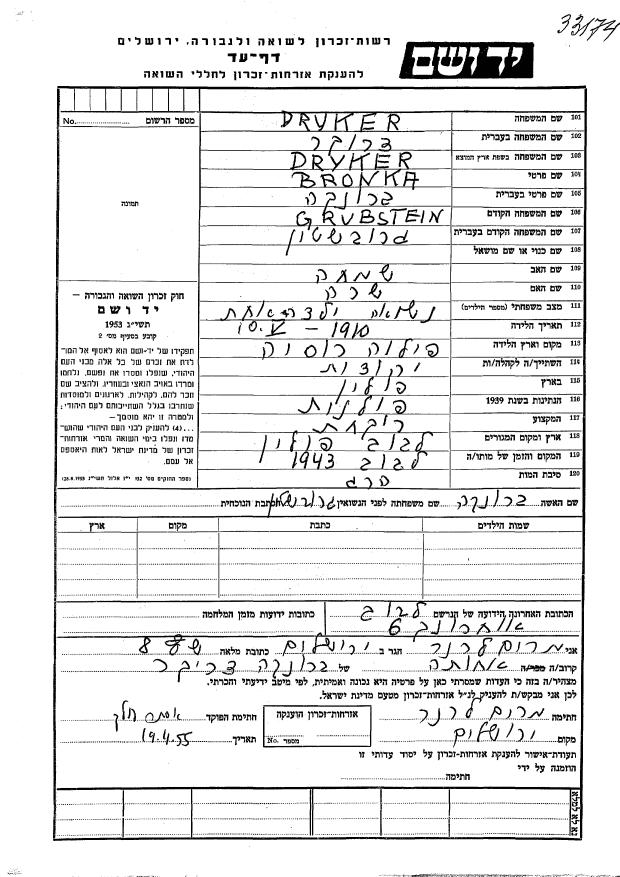 33174
יד ושם
רשות-זכרון לשואה ולגבורה, ירושלים
דף-עד
להענקת אזרחות-זכרון לחללי השואה
מספר הרשום
No.
תמונה
חוק זכרון השואה והגבורה —
יד ושם
תשי״ג 1953
קובע בסעיף מס׳ 2
תפקידו של יד-ושם הוא לאסוף אל המו-
לדת את זכרם של כל אלה מבני העם
היהודי, שנפלו ומסרו את נפשם, נלחמו
ומרדו באויב הנאצי ובעוזריו, ולהציב שם
וזכר להם, לקהילות, לארגונים ולמוסדות
שנחרבו בגלל השתייכותם לעם היהודי;
ולמטרה זו יהא מוסמך—
...(4) להעניק לבני העם היהודי שהוש-
מדו ונפלו בימי השואה והמרי אזרחות-
זכרון של מדינת ישראל לאות היאספם
אל עמם.
(ספר החוקים מס׳ 132 י״ז אלול תשי״ג 28.8.1953)
101 שם המשפחה DRYKER
102 שם המשפחה בעברית דרוקר
103 שם המשפחה בשפת ארץ המוצא DRYKER
104 שם פרטי BRONKA
105 שם פרטי בעברית ברונקה
106 שם המשפחה הקודם GRUBSTEIN
107 שם המשפחה הקודם בעברית גרובשטיין
108 שם כנוי או שם מושאל
109 שם האב שמחה
110 שם האם שרה
111 מצב משפחתי (מספר הילדים) נשואה ילדה אחת
112 תאריך הלידה 10.V — 1910
113 מקום וארץ הלידה רוסיה
114 השתייך/ה לקהלה/ות
115 בארץ פולין
116 הנתינות בשנת 1939 פולנית
117 המקצוע רוקחת
118 ארץ ומקום המגורים לבוב פולין
119 המקום והזמן של מותו/ה לבוב 1943
120 סיבת המות הרג
שם האשה ברונקה שם משפחתה לפני הנשואין גרובשטיין כתבת הנוכחית
שמות הילדים כתבת מקום ארץ
הכתובת האחרונה הידועה של הנרשם לבוב
6
כתובות ידועות מזמן המלחמה
אני מרים לרנר הגר ב ירושלים כתובת מלאה
קרוב/ה אחותה של ברונקה דריקר
מצהיר/ה בזה כי העדות שמסרתי כאן על פרטיה היא נכונה ואמיתית, לפי מיטב ידיעתי והכרתי.
לכן אני מבקש/ת להעניק לנ״ל אזרחות-זכרון מטעם מדינת ישראל.
חתימה מרים לרנר
מקום ירושלים
אזרחות-זכרון הוענקה
מספר No.
חתימת הפוקד
תאריך 19.4.55
תעודת-אישור להענקת אזרחות-זכרון על יסוד עדותי זו
הוזמנה על ידי
חתימה:
נא לא למלא